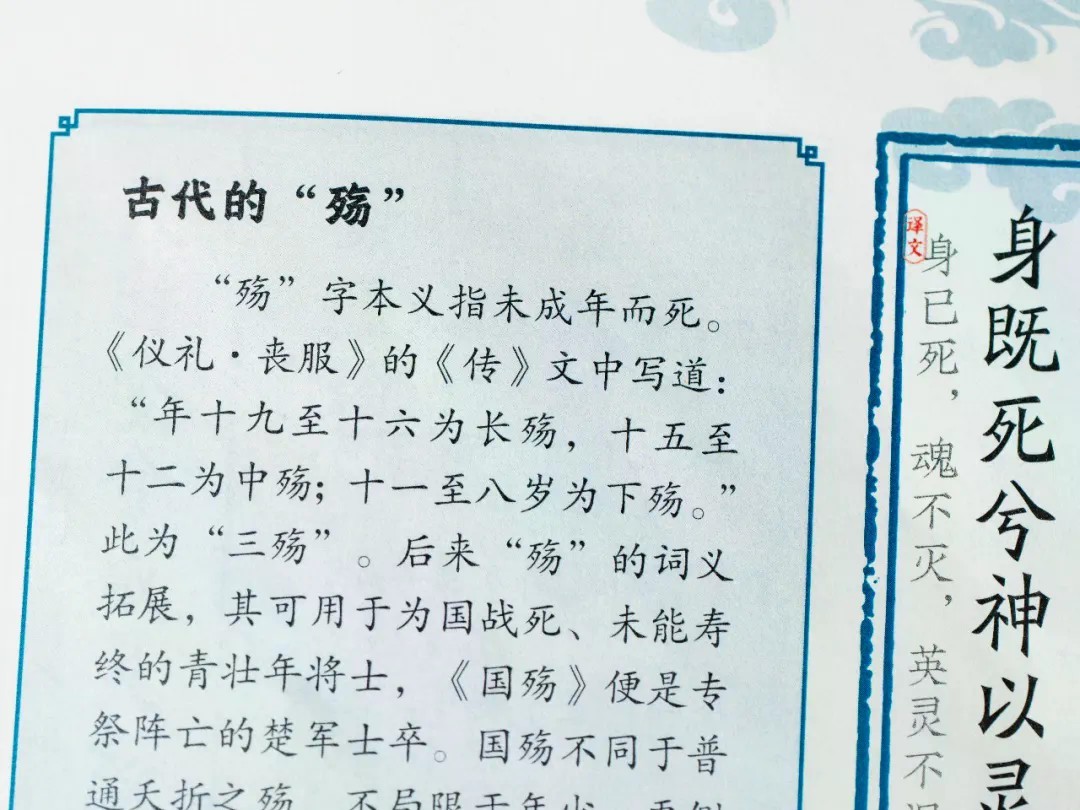 古代的“殇”
“殇”字本义指未成年而死。
《仪礼·丧服》的《传》文中写道：
“年十九至十六为长殇，十五至
十二为中殇；十一至八岁为下殇。”
此为“三殇”。后来“殇”的词义
拓展，其可用于为国战死、未能寿
终的青壮年将士，《国殇》便是专
祭阵亡的楚军士卒。国殇不同于普
通夭折之殇，不局限于年少，
身既死兮神以灵
译文
身已死，魂不灭，英灵不